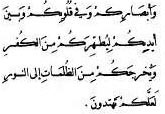 وَأَبْصَارِكُمْ وَفِي قُلُوبِكُمْ وَبَيْنَ
أَيْدِيكُمْ لِيُطَهِّرَكُمْ مِنَ الكُفْرِ
وَيُخْرِجَكُمْ مِنَ الظُّلُمَاتِ إِلَى النُّورِ
لَعَلَّكُمْ تَهْتَدُونَ